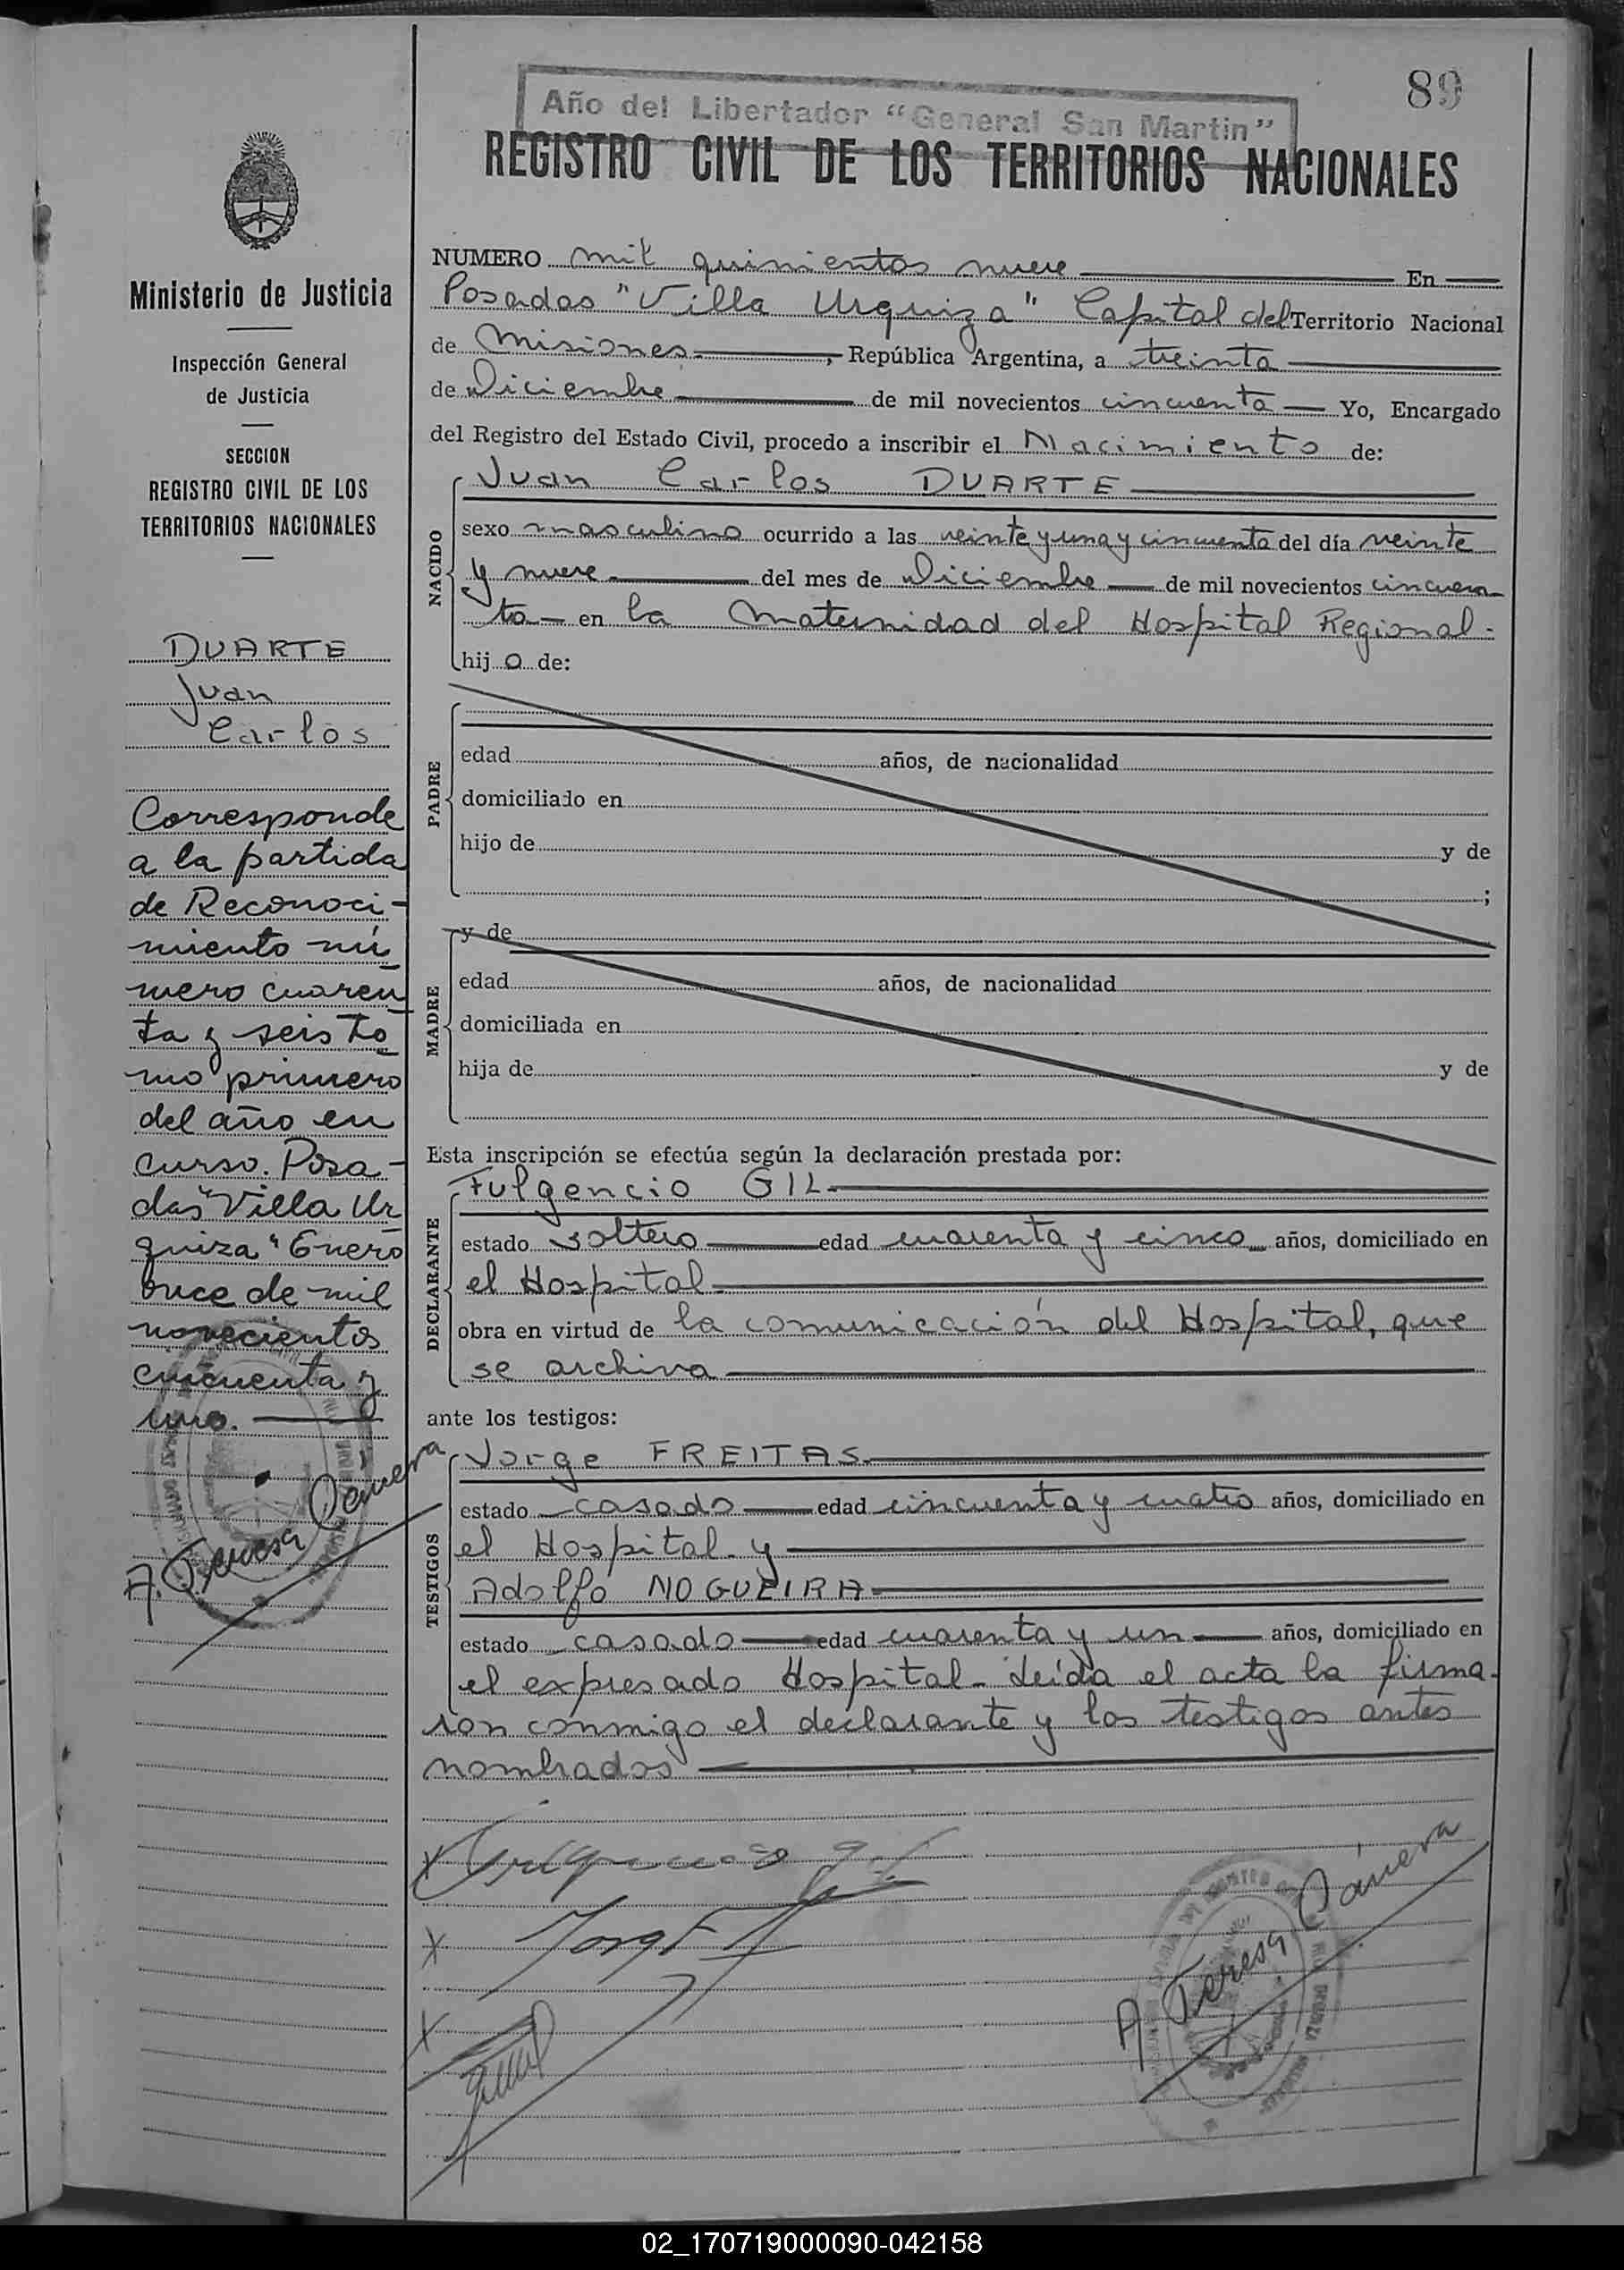 89
Año del Libertador "General San Martin"
REGISTRO CIVIL DE LOS TERRITORIOS NACIONALES
Ministerio de Justicia
Inspección General
de Justicia
SECCION
REGISTRO CIVIL DE LOS
TERRITORIOS NACIONALES
DUARTE
Juan
Carlos
Corresponde
a la partida
de Reconoci-
miento nú
mero cuaren
ta y seis to
mo primero
del año en
curso. Posa-
das "Villa Ur
quiza" Enero
once de mil
novecientos
cincuenta y
uno.
A. Teresa Cánera
NUMERO mil quinientos nueve En
Posadas "Villa Urquiza" Capital del Territorio Nacional
de Misiones, República Argentina, a treinta
de Diciembre de mil novecientos cincuenta Yo, Encargado
del Registro del Estado Civil, procedo a inscribir el Nacimiento de:
NACIDO
Juan Carlos DUARTE
sexo masculino ocurrido a las veinte y una y cincuenta del día veinte
y nueve del mes de Diciembre de mil novecientos cincuen
ta en la Maternidad del Hospital Regional.
hij o de:
PADRE
edad años, de nacionalidad
domiciliado en
hijo de y de
;
MADRE
y de
edad años, de nacionalidad
domiciliada en
hija de y de
Esta inscripción se efectúa según la declaración prestada por:
DECLARANTE
Fulgencio GIL
estado soltero edad cuarenta y cinco años, domiciliado en
el Hospital
obra en virtud de la comunicación del Hospital, que
se archiva
ante los testigos:
TESTIGOS
Jorge FREITAS
estado casado edad cincuenta y cuatro años, domiciliado en
el Hospital y
Adolfo NOGUEIRA
estado casado edad cuarenta y un años, domiciliado en
el expresado Hospital. Leída el acta la firma
ron conmigo el declarante y los testigos antes
nombrados
A Teresa Cánera
02_170719000090-042158